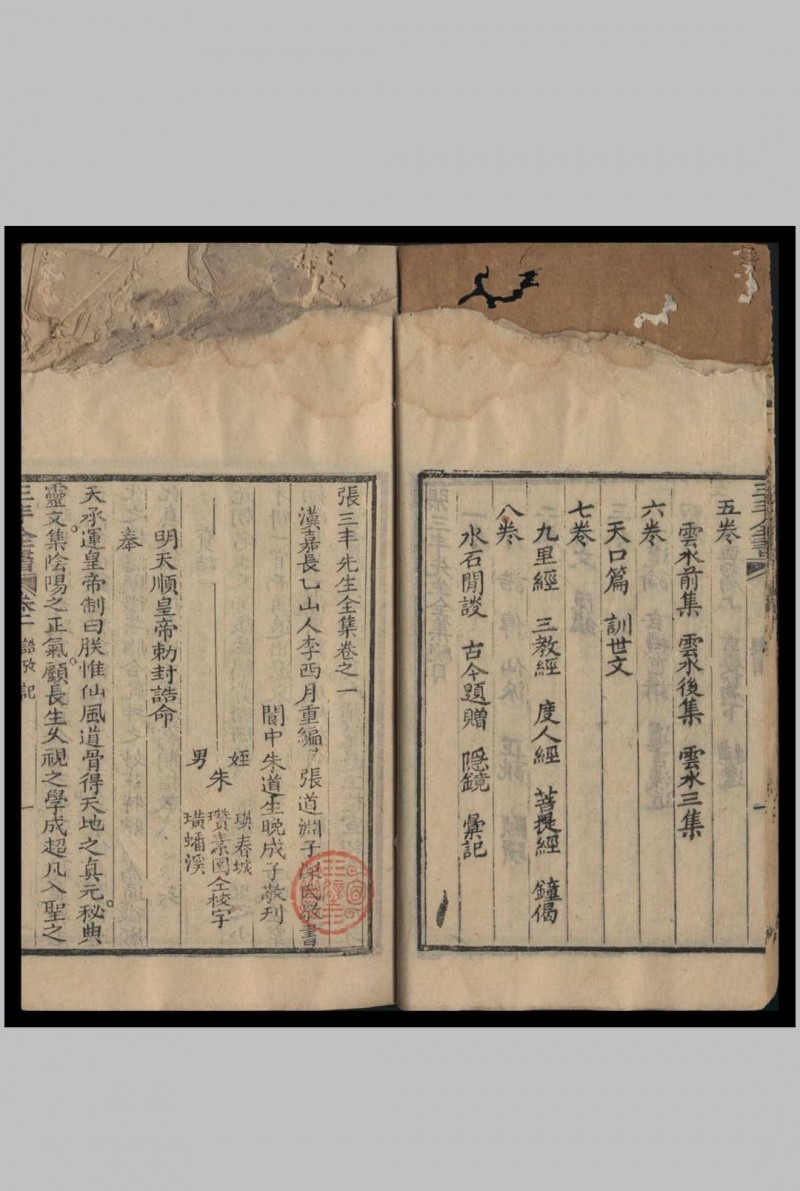 五卷
雲水前集 雲水後集 雲水三集
六卷
天口篇 訓世文
七卷
九皇經 三教經 度人經 菩提經 鐘偈
八卷
水石閒談 古今題贈 隱鏡 彙記
張三丰先生全集卷之一
漢嘉長乙山人李西月重編 張道淵子 敬書
閬中朱道生晚成子敬刊
姪 瑛春城
朱 瓚素園仝校字
男 璜蟠溪
明天順皇帝勅封誥命
奉
天承運皇帝制曰朕惟仙風道骨得天地之眞元秘典
靈文集陰陽之正氣顧長生久視之學成超凡入聖之
三丰全書 卷一 誥敕記 一